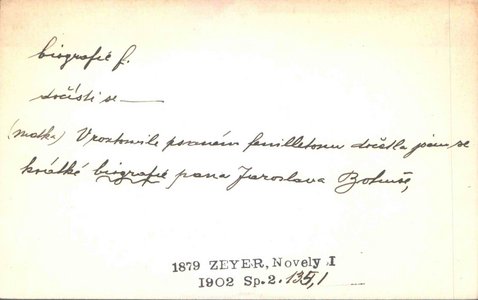 biografie f.
dočísti se —
(matka) V roztomile psaném feuilletonu dočetla jsem se
krátké biografie pana Jaroslava Bohuše,
1879 ZEYER, Novely I
1902 Sp.2. 135,1